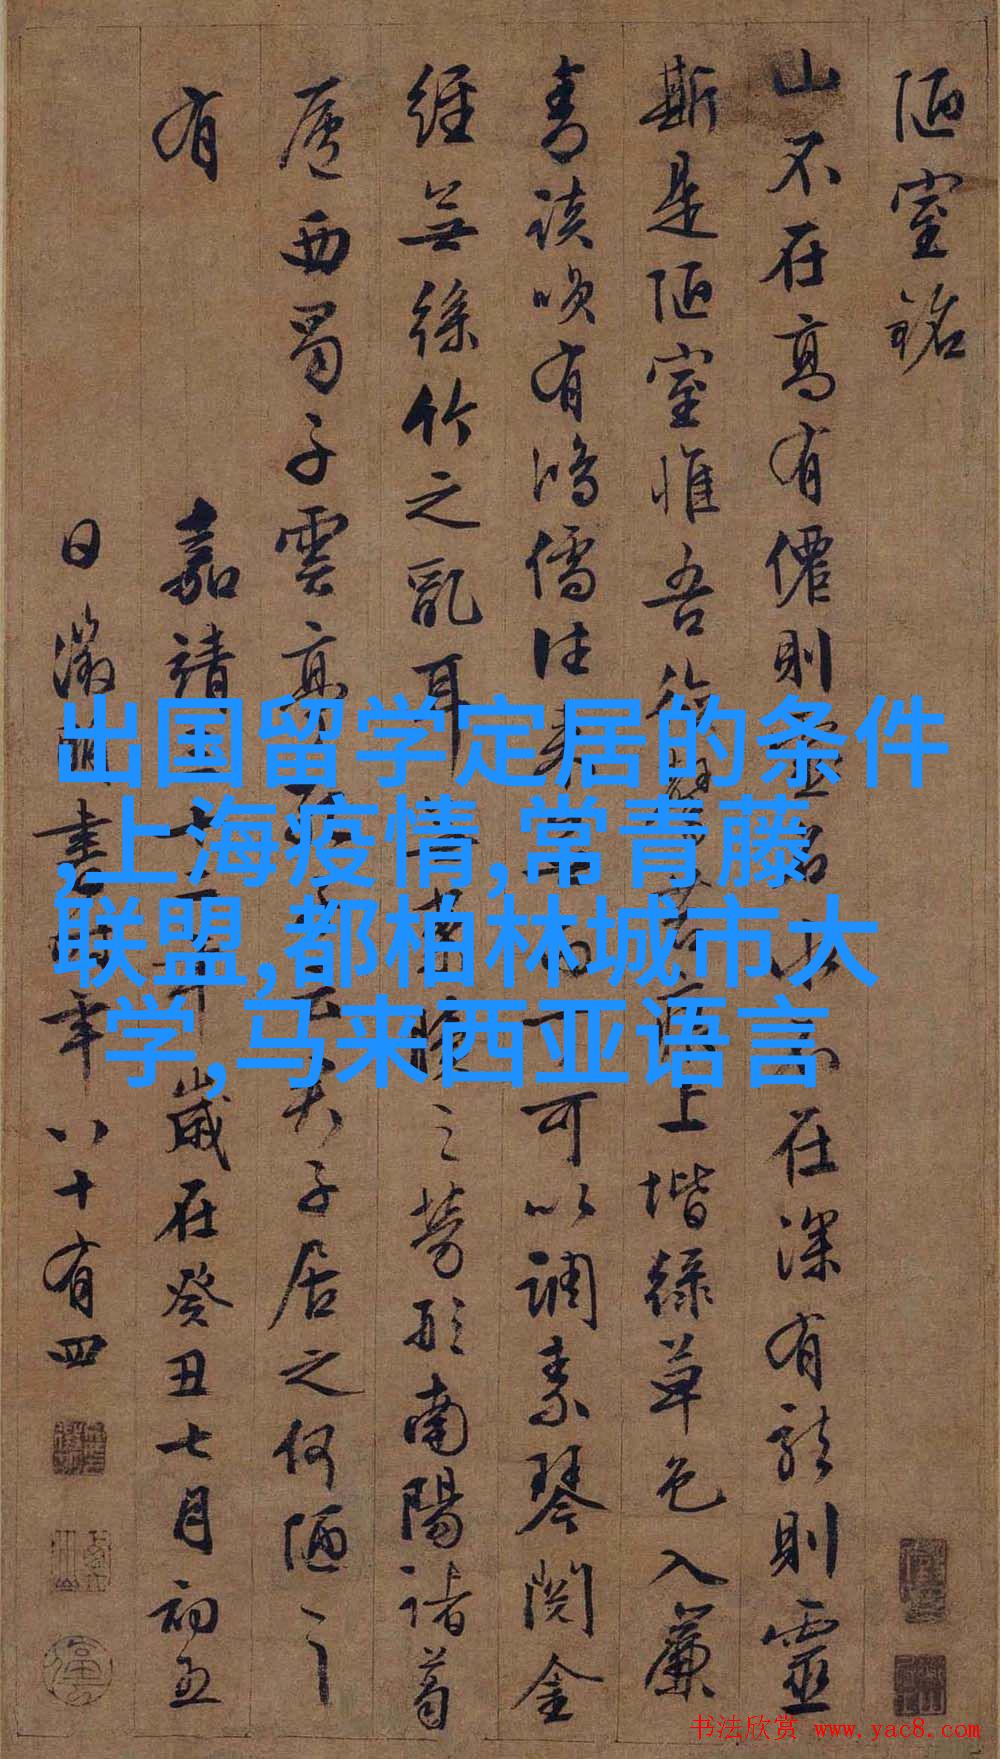 陋室銘
山不在高有僊則名水不在深有龍則靈
斯是陋室惟吾德馨苔痕上堦綠草色入簾
青談笑有鴻儒往來無白丁可以調素琴閱金
經無絲竹之亂耳無案牘之勞形南陽諸葛
廬西蜀子雲亭孔子云夫子居之何陋之
有
嘉靖三十二年歲在癸丑七月初五
日徵明書時年八十有四
出国留学定居的条件
,上海疫情,常青藤
联盟,都柏林城市大
学,马来西亚语言
书法欣赏 www.yac8.com